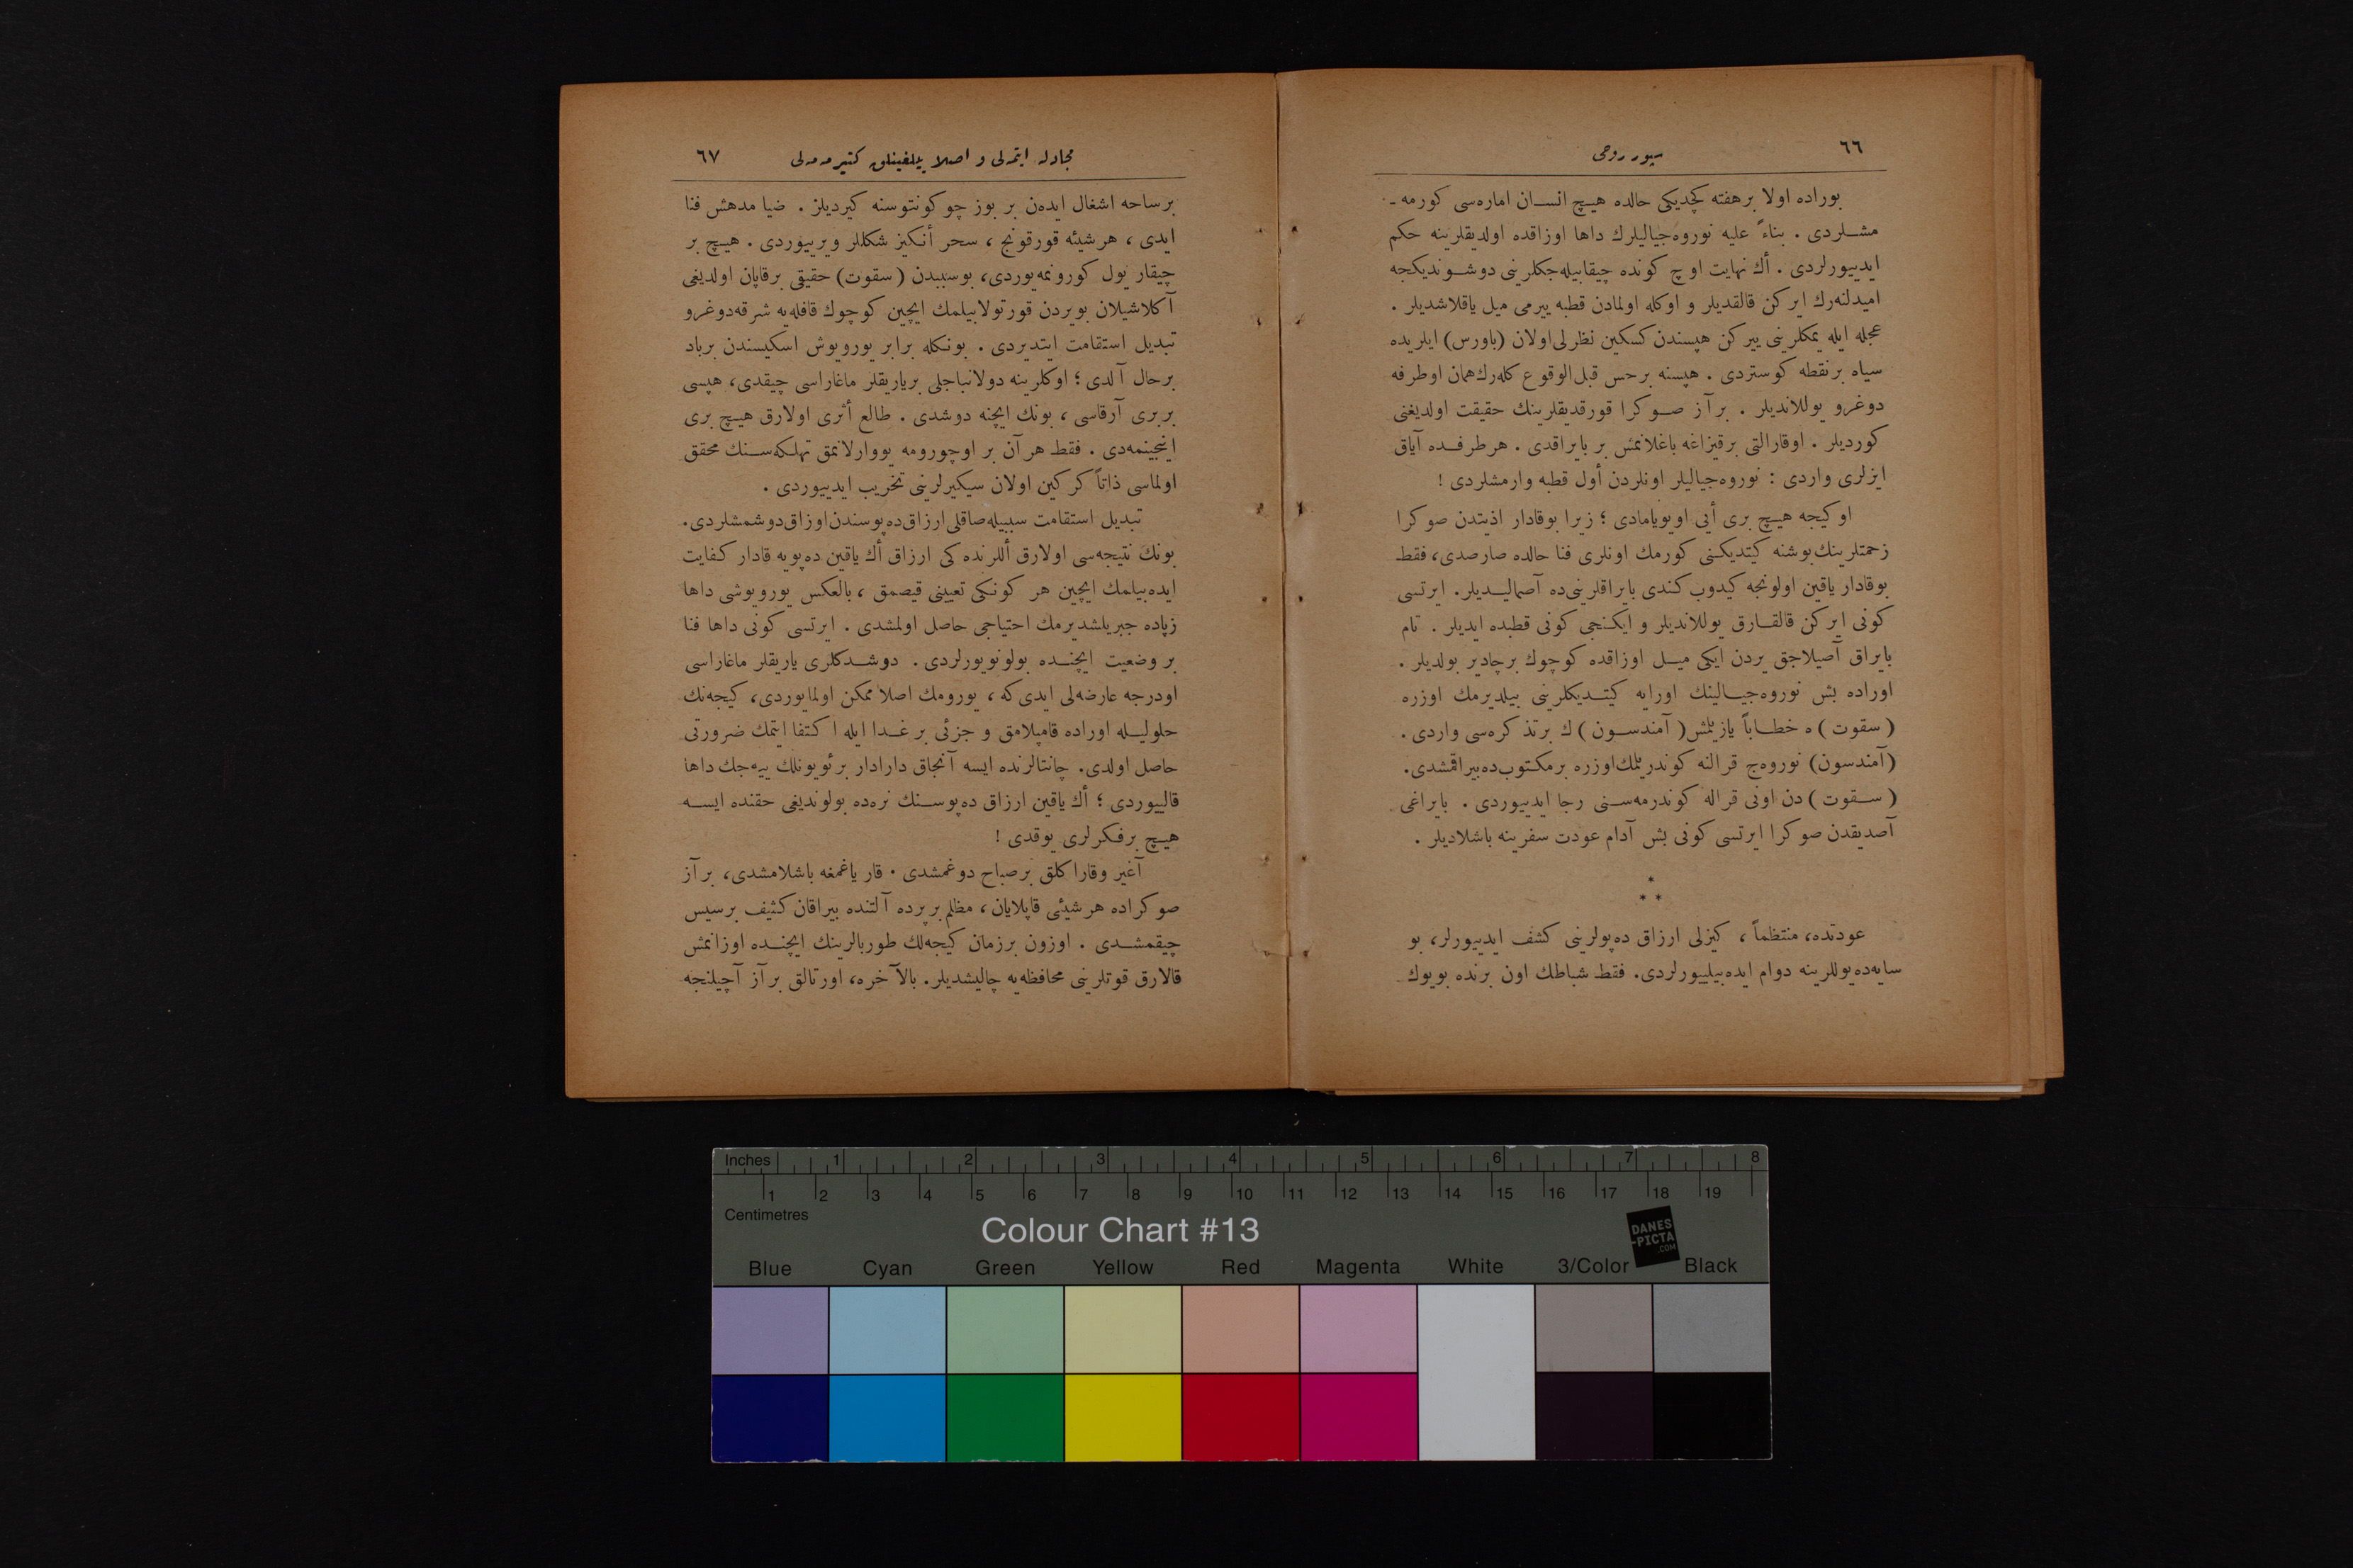 ٦٦
سپور روحی
بوراده اولا برهفته كچديكی حالده هيچ انسان اماره‌سی كورمه ـ
مشلردی . بناءً عليه نوروه‌جياليلرك داها اوزاقده اولديقلرينه حكم
ايدييورلردی . أك نهايت اوچ كونده چيقابيله‌جكلرينی دوشونديكجه
اميدلنه‌رك ايركن قالقديلر و اوكله اولمادن قطبه ييرمی ميل ياقلاشديلر .
عجله ايله يمكلرينی ييركن هپسندن كسكين نظرلی اولان (باورس) ايلريده
سياه برنقطه كوستردی . هپسنه برحس قبل‌الوقوع كله‌رك همان اوطرفه
دوغرو يوللانديلر . برآز صوكرا قورقديقلرينك حقيقت اولديغنی
كورديلر . اوقارالتی برقيزاغه باغلانمش بر بايراقدی . هرطرفده آياق
ايزلری واردی : نوروه‌جياليلر اونلردن أول قطبه وارمشلردی !
اوكيجه هيچ بری أيی اويويامادی ؛ زيرا بوقادار اذيتدن صوكرا
زحمتلرينك بوشنه كيتديكنی كورمك اونلری فنا حالده صارصدی، فقط
بوقادار ياقين اولونجه كيدوب كندی بايراقلرينی‌ده آصماليديلر. ايرتسی
كونی ايركن قالقارق يوللانديلر و ايكنجی كونی قطبده ايديلر . تام
بايراق آصيلاجق يردن ايكی ميل اوزاقده كوچوك برچادير بولديلر .
اوراده بش نوروه‌جيالينك اورايه كيتديكلرينی بيلديرمك اوزره
(سقوت) ه خطاباً يازيلمش (آمندسون) ك برتذكره‌سی واردی .
(آمندسون) نوروه‌ج قرالنه كوندريلمك اوزره برمكتوب‌ده بيراقمشدی.
(سقوت) دن اونی قراله كوندرمه‌سنی رجا ايدييوردی . بايراغی
آصديقدن صوكرا ايرتسی كونی بش آدام عودت سفرينه باشلاديلر .
*
* *
عودتده، منتظماً ، كيزلی ارزاق ده‌پولرينی كشف ايدييورلر، بو
سايه‌ده يوللرينه دوام ايده‌بيلييورلردی. فقط شباطك اون برنده بويوك
مجادله ايتمه‌لی و اصلا ييلغينلق كتيرمه‌مه‌لی
٦٧
برساحه اشغال ايده‌ن بر بوز چوكونتوسنه كيرديلر . ضيا مدهش فنا
ايدی ، هرشيئه قورقونج ، سحر أنكيز شكللر ويرييوردی . هيچ بر
چيقار يول كورونمه‌يوردی، بوسببدن (سقوت) حقيقی برقاپان اولديغی
آكلاشيلان بويردن قورتولابيلمك ايچين كوچوك قافله‌يه شرقه‌دوغرو
تبديل استقامت ايتديردی . بونكله برابر يورويوش اسكيسندن برباد
برحال آلدی ؛ اوكلرينه دولانباجلی برياريقلر ماغاراسی چيقدی، هپسی
بربری آرقاسی ، بونك ايچنه دوشدی . طالع أثری اولارق هيچ بری
اينجينمه‌دی . فقط هرآن بر اوچورومه يووارلانمق تهلكه‌سنك محقق
اولماسی ذاتاً كركين اولان سيكيرلرينی تخريب ايدييوردی .
تبديل استقامت سببيله صاقلی ارزاق ده‌پوسندن اوزاق دوشمشلردی.
بونك نتيجه‌سی اولارق أللرنده كی ارزاق أك ياقين ده‌پويه قادار كفايت
ايده‌بيلمك ايچين هر كونكی تعيينی قيصمق ، بالعكس يورويوشی داها
زياده جبريلشديرمك احتياجی حاصل اولمشدی . ايرتسی كونی داها فنا
بر وضعيت ايچنده بولونويورلردی . دوشدكلری ياريقلر ماغاراسی
اودرجه عارضه‌لی ايدی كه ، يورومك اصلا ممكن اولمايوردی، كيجه‌نك
حلوليله اوراده قامپلامق و جزئی برغدا ايله اكتفا ايتمك ضرورتی
حاصل اولدی. چانتالرنده ايسه آنجاق دارادار برئويونلك ييه‌جك داها
قالييوردی ؛ أك ياقين ارزاق ده‌پوسنك نره‌ده بولونديغی حقنده ايسه
هيچ برفكرلری يوقدی !
آغير وقاراكلق برصباح دوغمشدی . قار ياغمغه باشلامشدی، برآز
صوكراده هرشيئی قاپلايان ، مظلم برپرده آلتنده بيراقان كثيف برسيس
چيقمشدی . اوزون برزمان كيجه‌لك طوربالرينك ايچنده اوزانمش
قالارق قوتلرينی محافظه‌يه چاليشديلر. بالآخره، اورتالق برآز آچيلنجه
Inches 1 2 3 4 5 6 7 8
1 2 3 4 5 6 7 8 9 10 11 12 13 14 15 16 17 18 19
Centimetres
Colour Chart #13
DANES
-PICTA
.COM
Blue Cyan Green Yellow Red Magenta White 3/Color Black